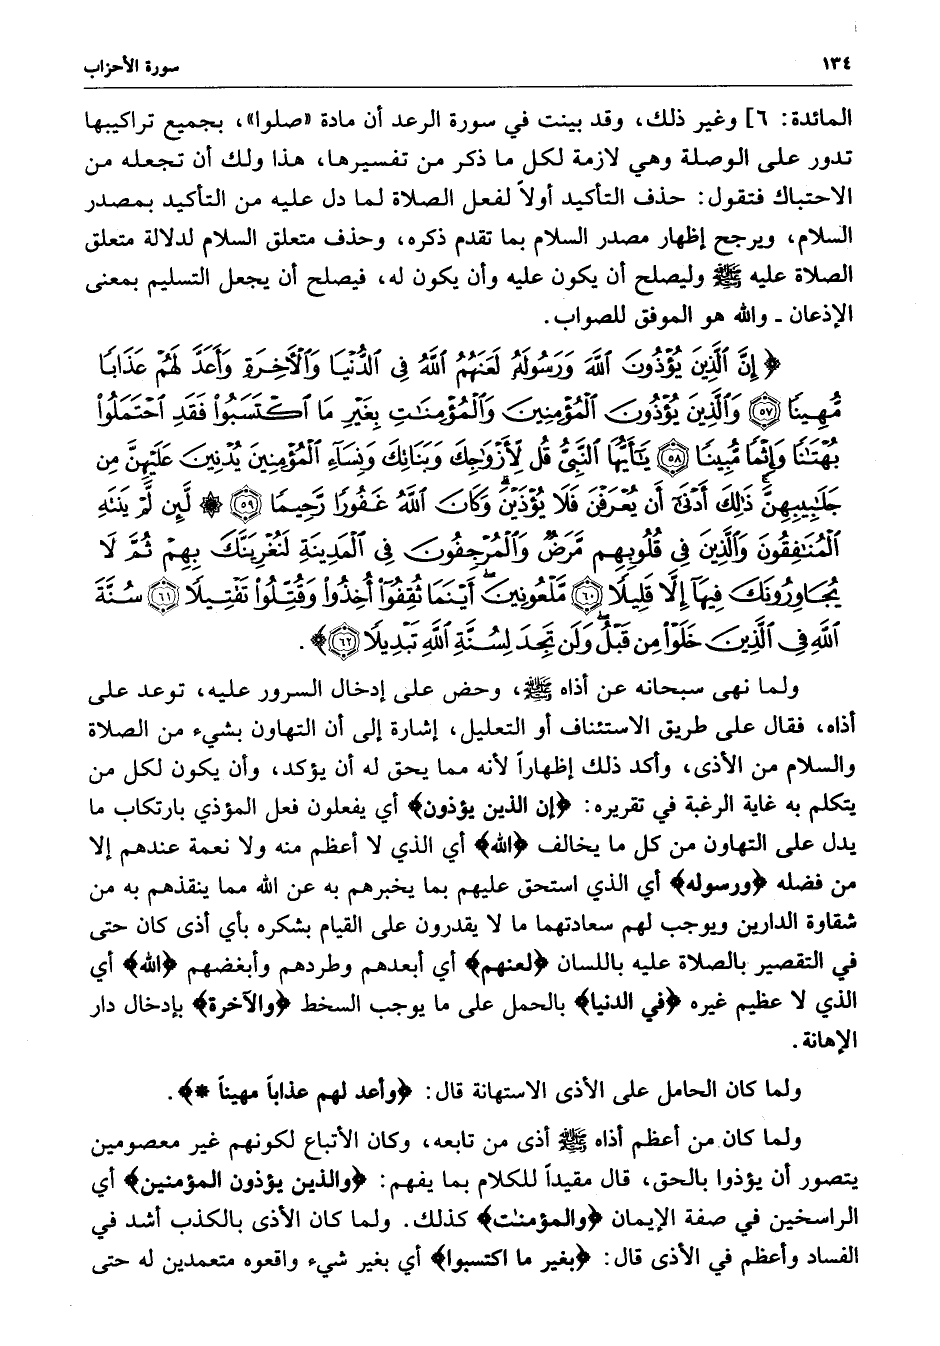 ١٣٤ سورة الأحزاب
المائدة: ٦] وغير ذلك، وقد بينت في سورة الرعد أن مادة «صلوا»، بجميع تراكيبها
تدور على الوصلة وهي لازمة لكل ما ذكر من تفسيرها، هذا ولك أن تجعله من
الاحتباك فتقول: حذف التأكيد أولاً لفعل الصلاة لما دل عليه من التأكيد بمصدر
السلام، ويرجح إظهار مصدر السلام بما تقدم ذكره، وحذف متعلق السلام لدلالة متعلق
الصلاة عليه ﷺ وليصلح أن يكون عليه وأن يكون له، فيصلح أن يجعل التسليم بمعنى
الإذعان ـ والله هو الموفق للصواب.
﴿إِنَّ ٱلَّذِينَ يُؤْذُونَ ٱللَّهَ وَرَسُولَهُۥ لَعَنَهُمُ ٱللَّهُ فِى ٱلدُّنْيَا وَٱلْأَخِرَةِ وَأَعَدَّ لَهُمْ عَذَابًا
مُّهِينًا ٥٧ وَٱلَّذِينَ يُؤْذُونَ ٱلْمُؤْمِنِينَ وَٱلْمُؤْمِنَٰتِ بِغَيْرِ مَا ٱكْتَسَبُوا۟ فَقَدِ ٱحْتَمَلُوا۟
بُهْتَٰنًا وَإِثْمًا مُّبِينًا ٥٨ يَٰٓأَيُّهَا ٱلنَّبِىُّ قُل لِّأَزْوَٰجِكَ وَبَنَاتِكَ وَنِسَآءِ ٱلْمُؤْمِنِينَ يُدْنِينَ عَلَيْهِنَّ مِن
جَلَٰبِيبِهِنَّ ۚ ذَٰلِكَ أَدْنَىٰٓ أَن يُعْرَفْنَ فَلَا يُؤْذَيْنَ ۗ وَكَانَ ٱللَّهُ غَفُورًا رَّحِيمًا ٥٩ ۞ لَّئِن لَّمْ يَنتَهِ
ٱلْمُنَٰفِقُونَ وَٱلَّذِينَ فِى قُلُوبِهِم مَّرَضٌ وَٱلْمُرْجِفُونَ فِى ٱلْمَدِينَةِ لَنُغْرِيَنَّكَ بِهِمْ ثُمَّ لَا
يُجَاوِرُونَكَ فِيهَآ إِلَّا قَلِيلًا ٦٠ مَّلْعُونِينَ ۖ أَيْنَمَا ثُقِفُوٓا۟ أُخِذُوا۟ وَقُتِّلُوا۟ تَقْتِيلًا ٦١ سُنَّةَ
ٱللَّهِ فِى ٱلَّذِينَ خَلَوْا۟ مِن قَبْلُ ۖ وَلَن تَجِدَ لِسُنَّةِ ٱللَّهِ تَبْدِيلًا ٦٢﴾.
ولما نهى سبحانه عن أذاه ﷺ، وحض على إدخال السرور عليه، توعد على
أذاه، فقال على طريق الاستئناف أو التعليل، إشارة إلى أن التهاون بشيء من الصلاة
والسلام من الأذى، وأكد ذلك إظهاراً لأنه مما يحق له أن يؤكد، وأن يكون لكل من
يتكلم به غاية الرغبة في تقريره: ﴿إن الذين يؤذون﴾ أي يفعلون فعل المؤذي بارتكاب ما
يدل على التهاون من كل ما يخالف ﴿الله﴾ أي الذي لا أعظم منه ولا نعمة عندهم إلا
من فضله ﴿ورسوله﴾ أي الذي استحق عليهم بما يخبرهم به عن الله مما ينقذهم به من
شقاوة الدارين ويوجب لهم سعادتهما ما لا يقدرون على القيام بشكره بأي أذى كان حتى
في التقصير بالصلاة عليه باللسان ﴿لعنهم﴾ أي أبعدهم وطردهم وأبغضهم ﴿الله﴾ أي
الذي لا عظيم غيره ﴿في الدنيا﴾ بالحمل على ما يوجب السخط ﴿والآخرة﴾ بإدخال دار
الإهانة.
ولما كان الحامل على الأذى الاستهانة قال: ﴿وأعد لهم عذاباً مهيناً *﴾.
ولما كان من أعظم أذاه ﷺ أذى من تابعه، وكان الأتباع لكونهم غير معصومين
يتصور أن يؤذوا بالحق، قال مقيداً للكلام بما يفهم: ﴿والذين يؤذون المؤمنين﴾ أي
الراسخين في صفة الإيمان ﴿والمؤمنٰت﴾ كذلك. ولما كان الأذى بالكذب أشد في
الفساد وأعظم في الأذى قال: ﴿بغير ما اكتسبوا﴾ أي بغير شيء واقعوه متعمدين له حتى